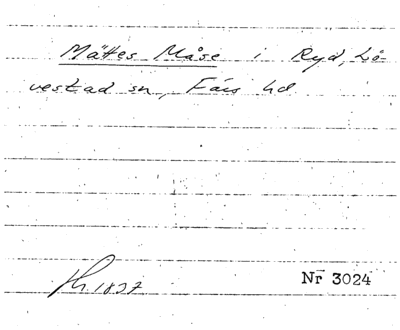 Mättes Måse i Ryd, Lö-
vestad sn, Färs hd
Nr 3024